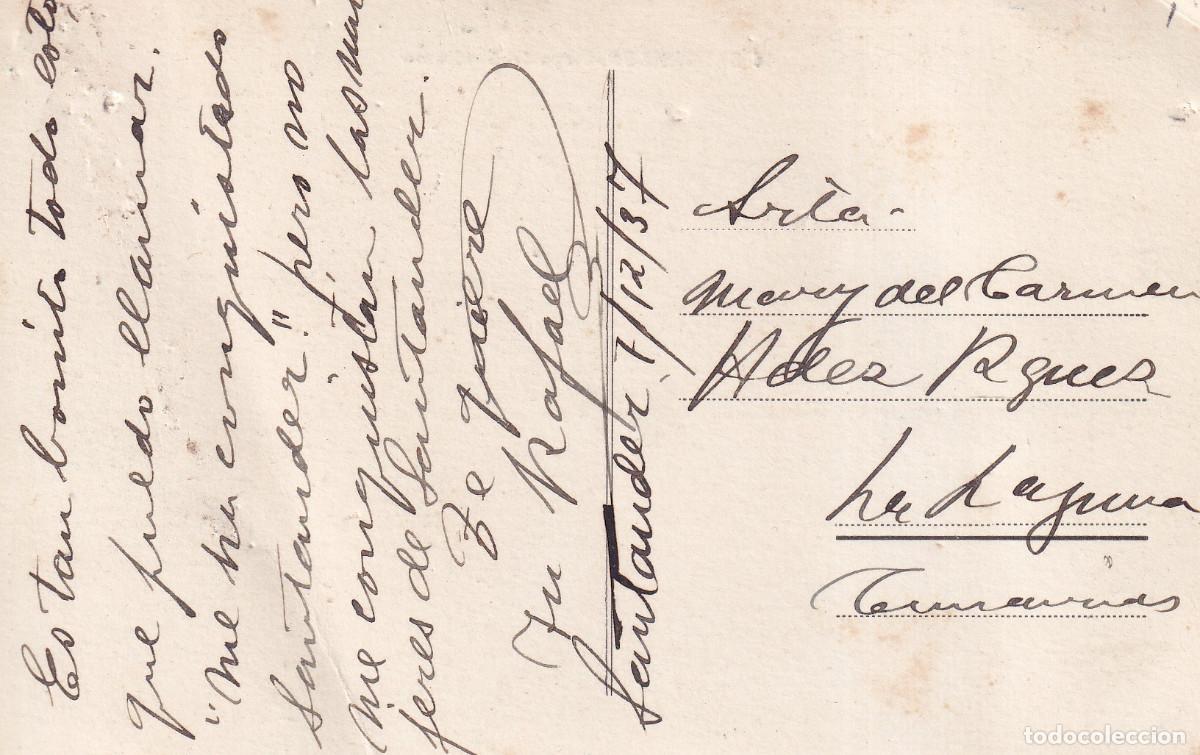 Es tan bonito todo esto,
que puedo llamar.
"me ha conquistado
Santander!" pero no
me conquistan las mu
jeres de Santander.
Te quiere
Tu Rafael
Santander, 7/12/37
Srita.
Mary del Carmen
Hdez Rguez
La Laguna
todocoleccion